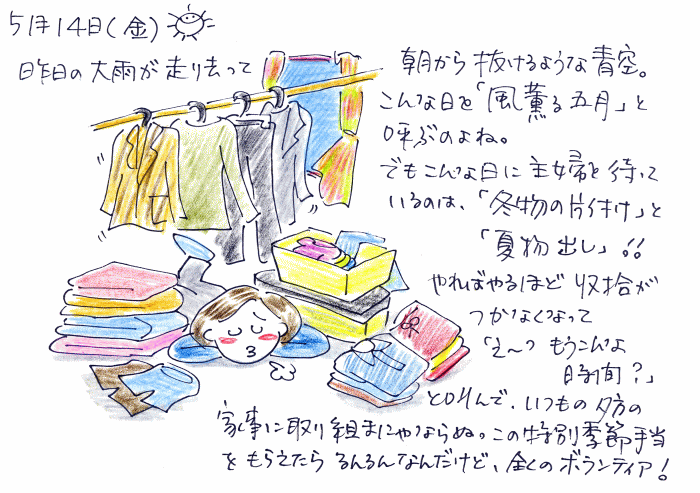 5月14日(金)
昨日の大雨が走り去って
朝から抜けるような青空。
こんな日を「風薫る五月」と
呼ぶのよね。
でもこんな日に主婦を待って
いるのは、「冬物の片付け」と
「夏物出し」!!
やればやるほど収拾が
つかなくなって
「え〜っもうこんな
時間?」
と叫んで、いつもの夕方の
家事に取り組まにゃならぬ。この特別季節手当
をもらえたらるんるんなんだけど、全くのボランティア!